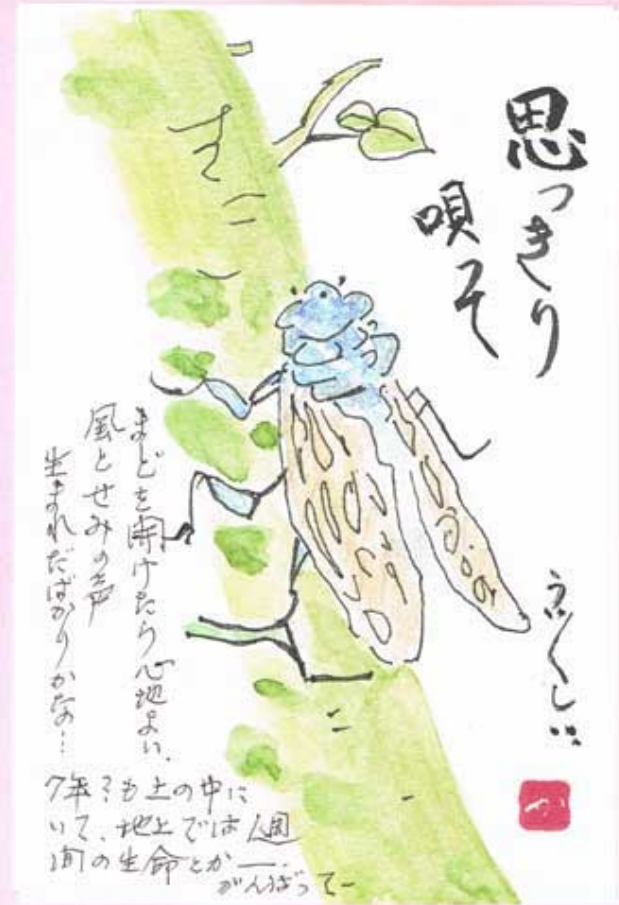 思っきり
唄そ
まどを開けたら心地よい、
風とせみの声
生まれだばかりかなぁ…
7年?も土の中に
いて、地上では1週
間の生命とか―…
がんばってー
か